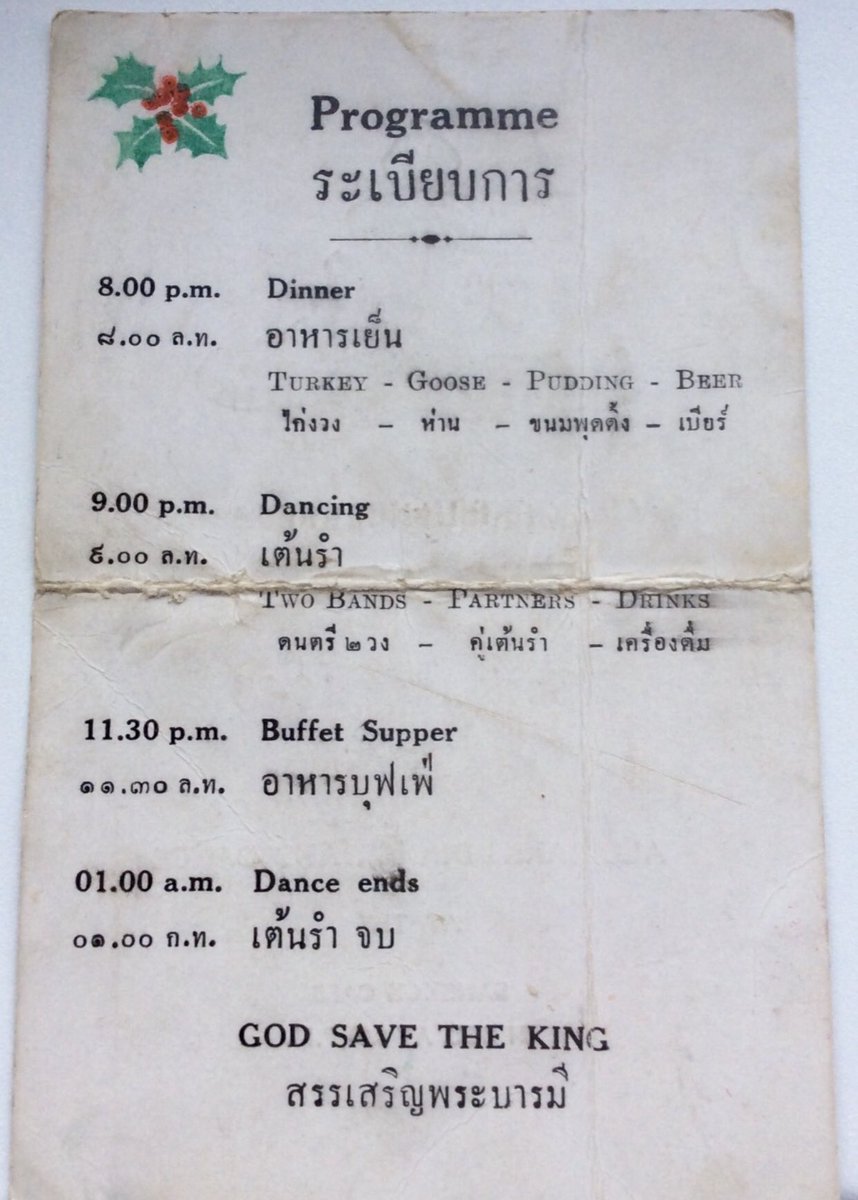 Programme
ระเบียบการ
8.00 p.m. Dinner
๘.๐๐ ล.ท. อาหารเย็น
TURKEY - GOOSE - PUDDING - BEER
ไก่งวง – ห่าน – ขนมพุดดิ้ง – เบียร์
9.00 p.m. Dancing
๙.๐๐ ล.ท. เต้นรำ
TWO BANDS - PARTNERS - DRINKS
ดนตรี ๒ วง – คู่เต้นรำ – เครื่องดื่ม
11.30 p.m. Buffet Supper
๑๑.๓๐ ล.ท. อาหารบุฟเฟ่
01.00 a.m. Dance ends
๐๑.๐๐ ก.ท. เต้นรำ จบ
GOD SAVE THE KING
สรรเสริญพระบารมี